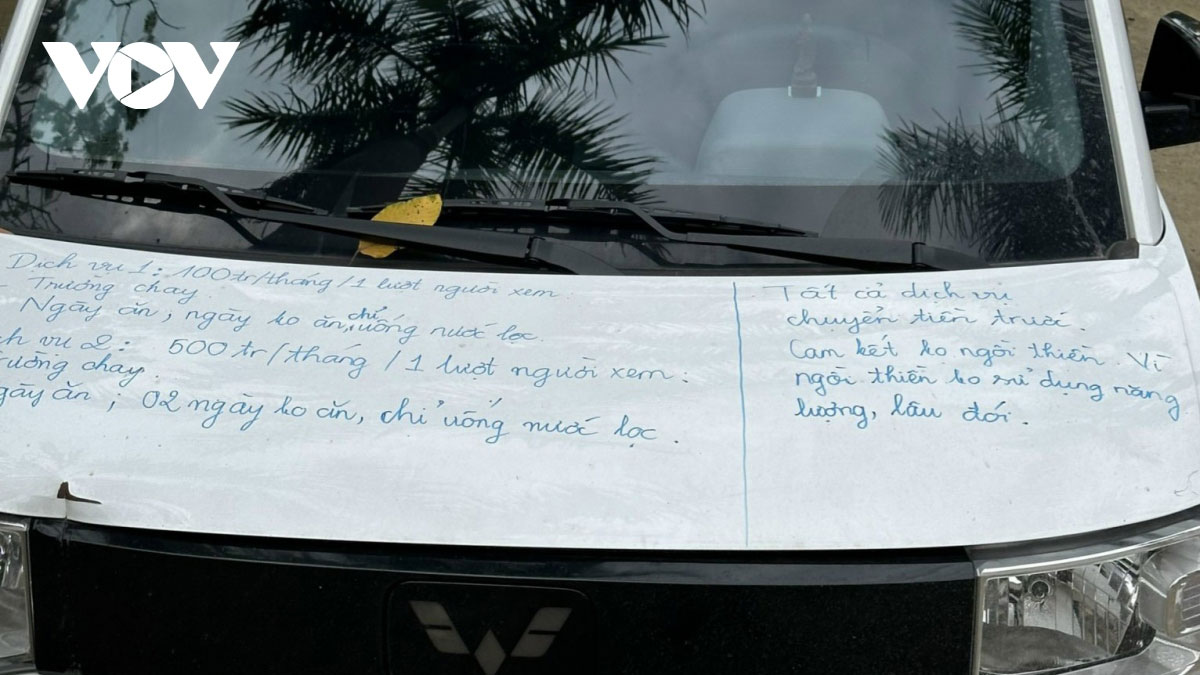 VOV
Dịch vụ 1: 100tr/tháng/1 lượt người xem.
- Trường chay.
Ngày ăn, ngày ko ăn, chỉ uống nước lọc.
ch vụ 2: 500 tr/tháng /1 lượt người xem:
rường chay.
gày ăn; 02 ngày ko ăn, chỉ uống nước lọc.
Tất cả dịch vụ
chuyển tiền trước.
Cam kết ko ngồi thiền. Vì
ngồi thiền ko sử dụng năng
lượng, lâu đói.